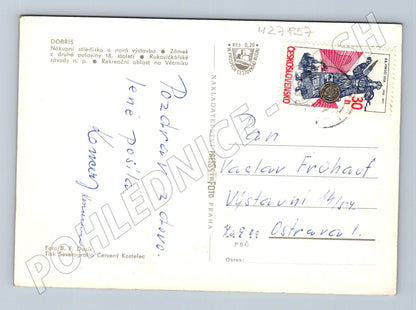 427557
DOBŘÍŠ
Nákupní středisko a nová výstavba ● Zámek
z druhé poloviny 18. století ● Rukavičkářské
závody n. p. ● Rekreační oblast na Větrníku
Pozdrav z dovo-
lené posílá
Foto B. F.
Tisk Severografia Červený Kostelec
NAKLADATELSTVÍ PRESSFOTO PRAHA
ČESKOSLOVENSKO
30
h
Pan
Václav Frühauf
Výstavní
Ostrava 1.
PSČ
Okres:
POHLEDNICE